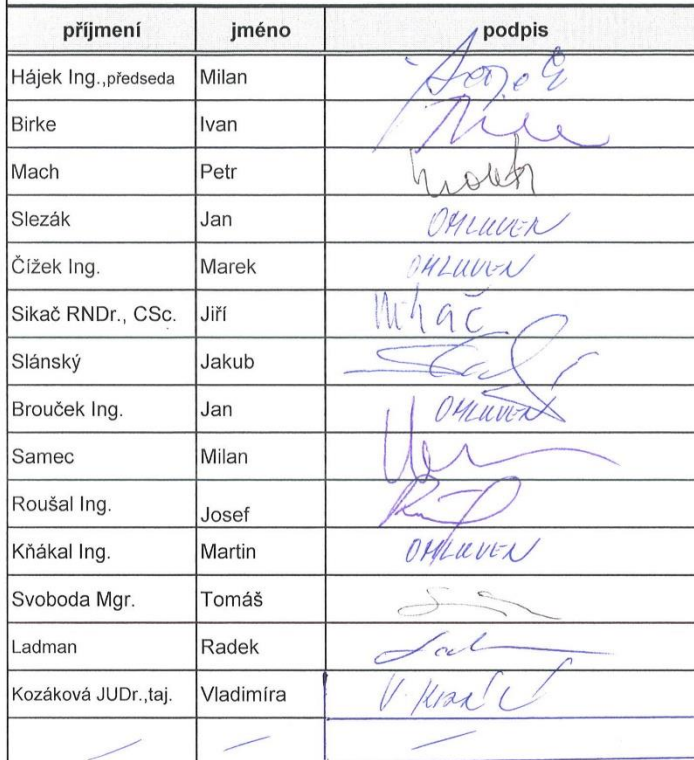 příjmení jméno podpis
Hájek Ing.,předseda Milan
Birke Ivan
Mach Petr
Slezák Jan OMLUVEN
Čížek Ing. Marek OMLUVEN
Sikač RNDr., CSc. Jiří
Slánský Jakub
Brouček Ing. Jan OMLUVEN
Samec Milan
Roušal Ing. Josef
Kňákal Ing. Martin OMLUVEN
Svoboda Mgr. Tomáš
Ladman Radek
Kozáková JUDr.,taj. Vladimíra